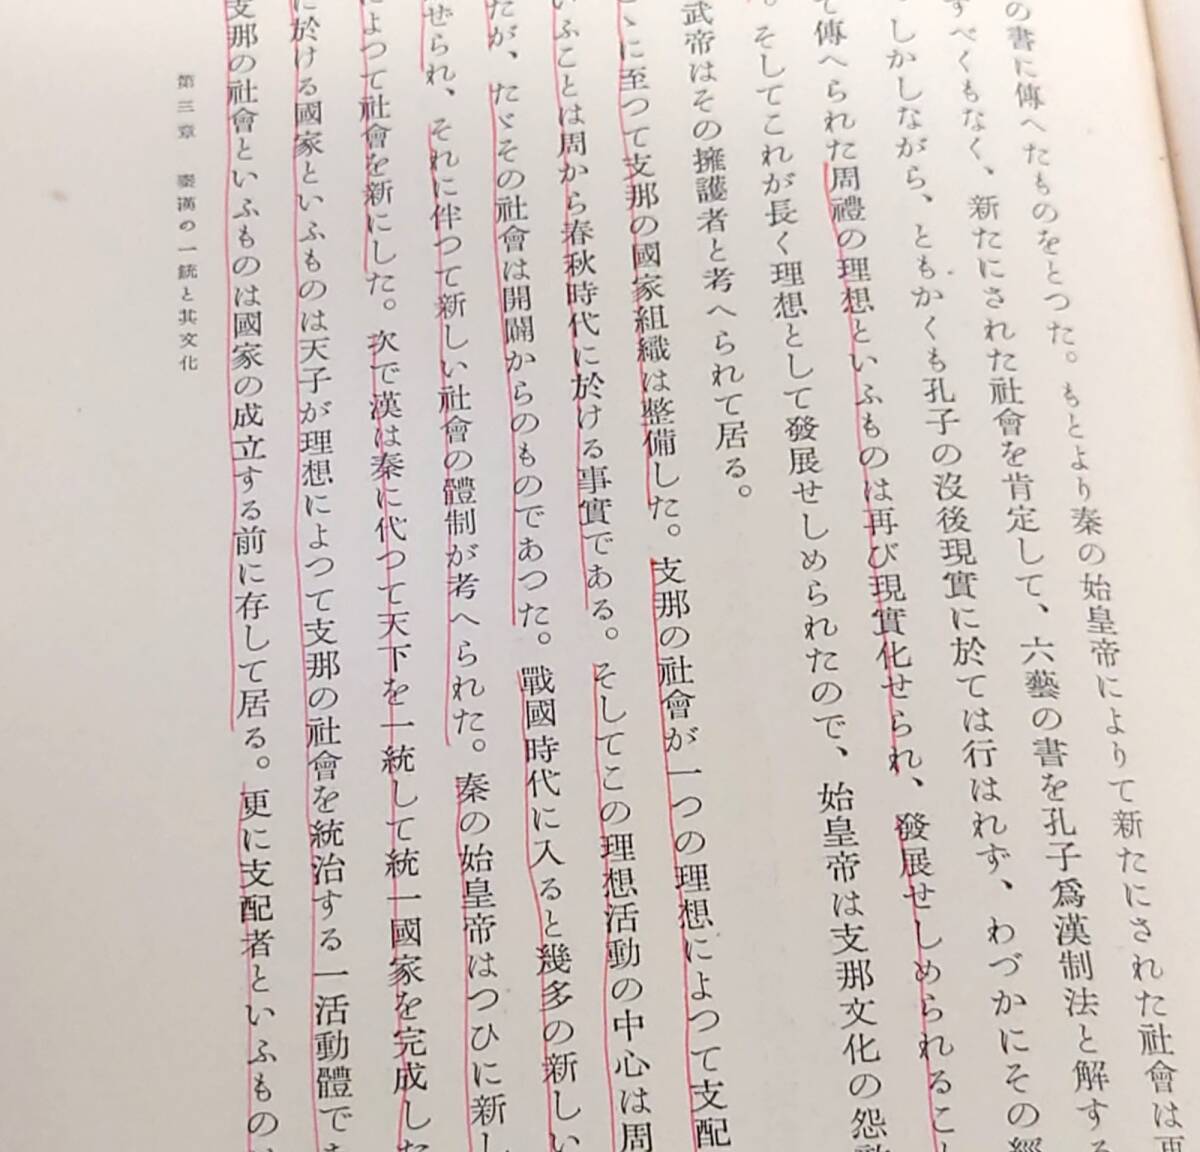 の書に傳へたものをとつた。もとより秦の始皇帝によりて新たにされた社會は再
すべくもなく、新たにされた社會を肯定して、六藝の書を孔子爲漢制法と解する
しかしながら、ともかくも孔子の沒後現實に於ては行はれず、わづかにその經
て傳へられた周禮の理想といふものは再び現實化せられ、發展せしめられるこ
。そしてこれが長く理想として發展せしめられたので、始皇帝は支那文化の怨敵
武帝はその擁護者と考へられて居る。
ゝに至つて支那の國家組織は整備した。支那の社會が一つの理想によつて支配
いふことは周から春秋時代に於ける事實である。そしてこの理想活動の中心は周
たが、たゞその社會は開闢からのものであつた。戰國時代に入ると幾多の新しい
ぜられ、それに伴つて新しい社會の體制が考へられた。秦の始皇帝はつひに新し
によつて社會を新にした。次で漢は秦に代つて天下を一統して統一國家を完成した
に於ける國家といふものは天子が理想によつて支那の社會を統治する一活動體であ
支那の社會といふものは國家の成立する前に存して居る。更に支配者といふもの
第三章 秦漢の一統と其文化